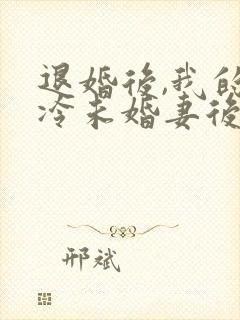 退婚後,我的
冷未婚妻後
邢斌